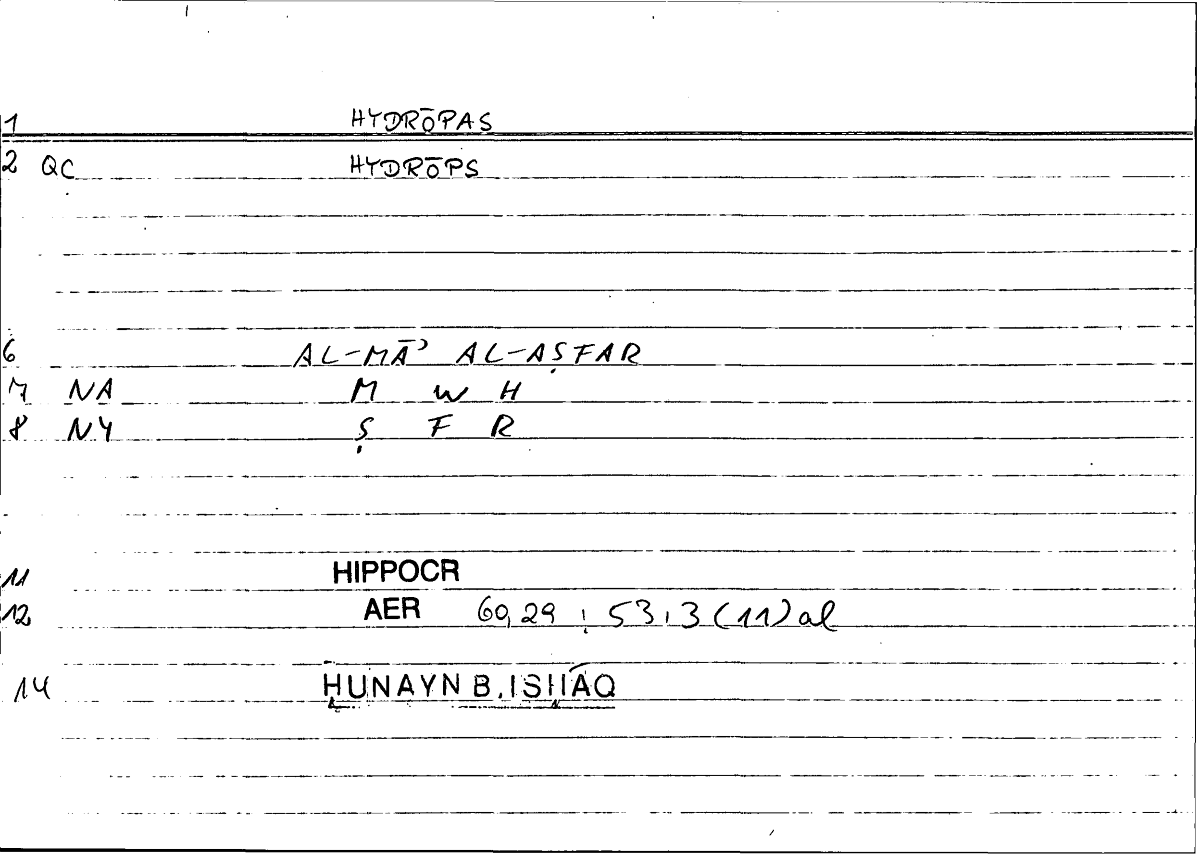 1 HYDRŌPAS
2 QC HYDRŌPS
6 AL-MĀʾ AL-AṢFAR
7 NA M W H
8 NY Ṣ F R
11 HIPPOCR
12 AER 60,29 ; 53,3 (11) al
14 ḤUNAYN B. ISḤĀQ